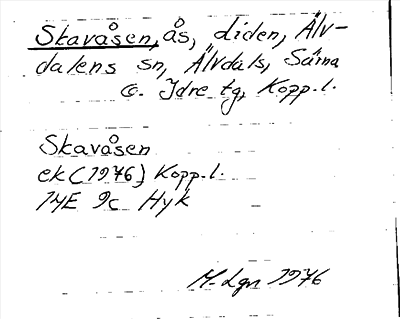 Skavåsen, ås, Liden, Älv-
dalens sn, Älvdals, Särna
o. Idre tg, Kopp.l.
Skavåsen
ek (1976) Kopp.l.
14E 9c Hyk
M. Lgn 1976